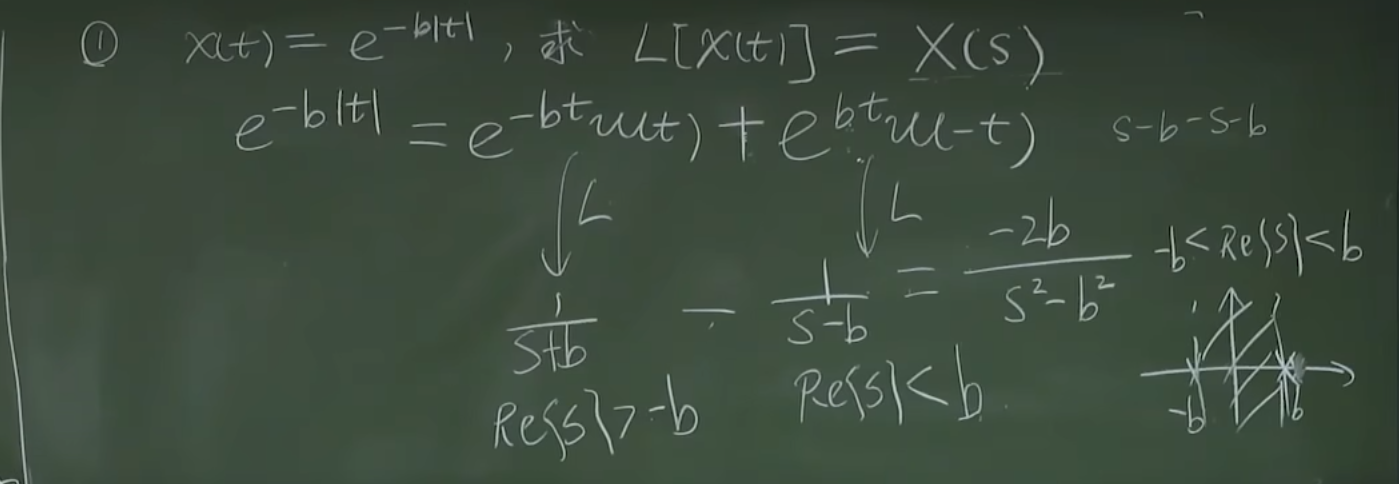 ① x(t) = e^{-b|t|}, 求 L[x(t)] = X(s)
e^{-b|t|} = e^{-bt}u(t) + e^{bt}u(-t) s-b-s-b
↓L ↓L
1/(s+b) - 1/(s-b) = -2b/(s²-b²) -b<Re{s}<b
Re{s}>-b Re{s}<b
-b b